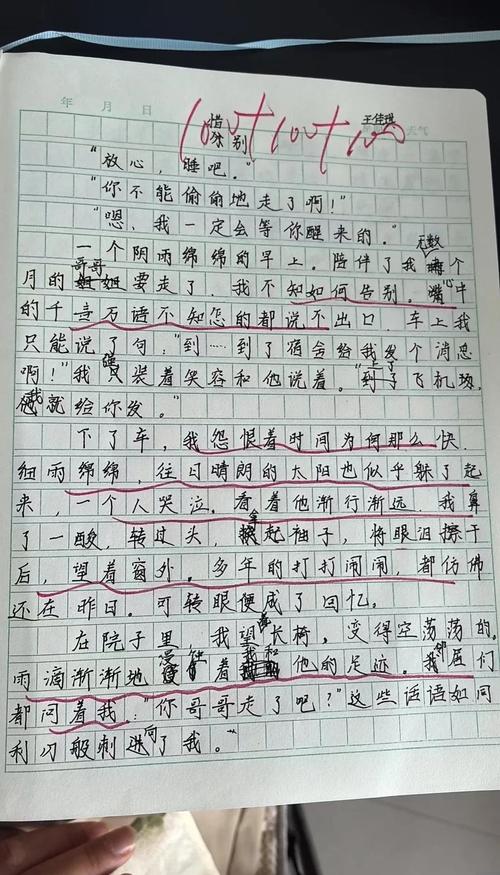 年 月 日
100+100+100
王佳琪
天气
惜别
“放心，睡吧。”
“你不能偷偷地走了啊！”
“嗯，我一定会等你醒来的。”
一个阴雨绵绵的早上。陪伴了我无数个
月的哥哥要走了，我不知如何告别。心中
的千言万语不知怎的都说不出口，车上我
只能说了句：“到……到了宿舍给我发个消息
啊！”我强装着笑容和他说着。“上了飞机场，
我就给你发。”
下了车，我怨恨着时间为何那么快。
细雨绵绵，往日晴朗的太阳也似乎躲了起
来，一个人哭泣。看着他渐行渐远，我鼻
了一酸，转过头，拿起袖子，将眼泪擦干
后，望着窗外。多年的打打闹闹，都仿佛
还在昨日。可转眼便成了回忆。
在院子里，我望长椅，变得空荡荡的。
雨滴渐渐地漫蚀着我和他的足迹。邻居们
都问着我：“你哥哥走了吧？”这些话语如同
利刃般刺向了我。“